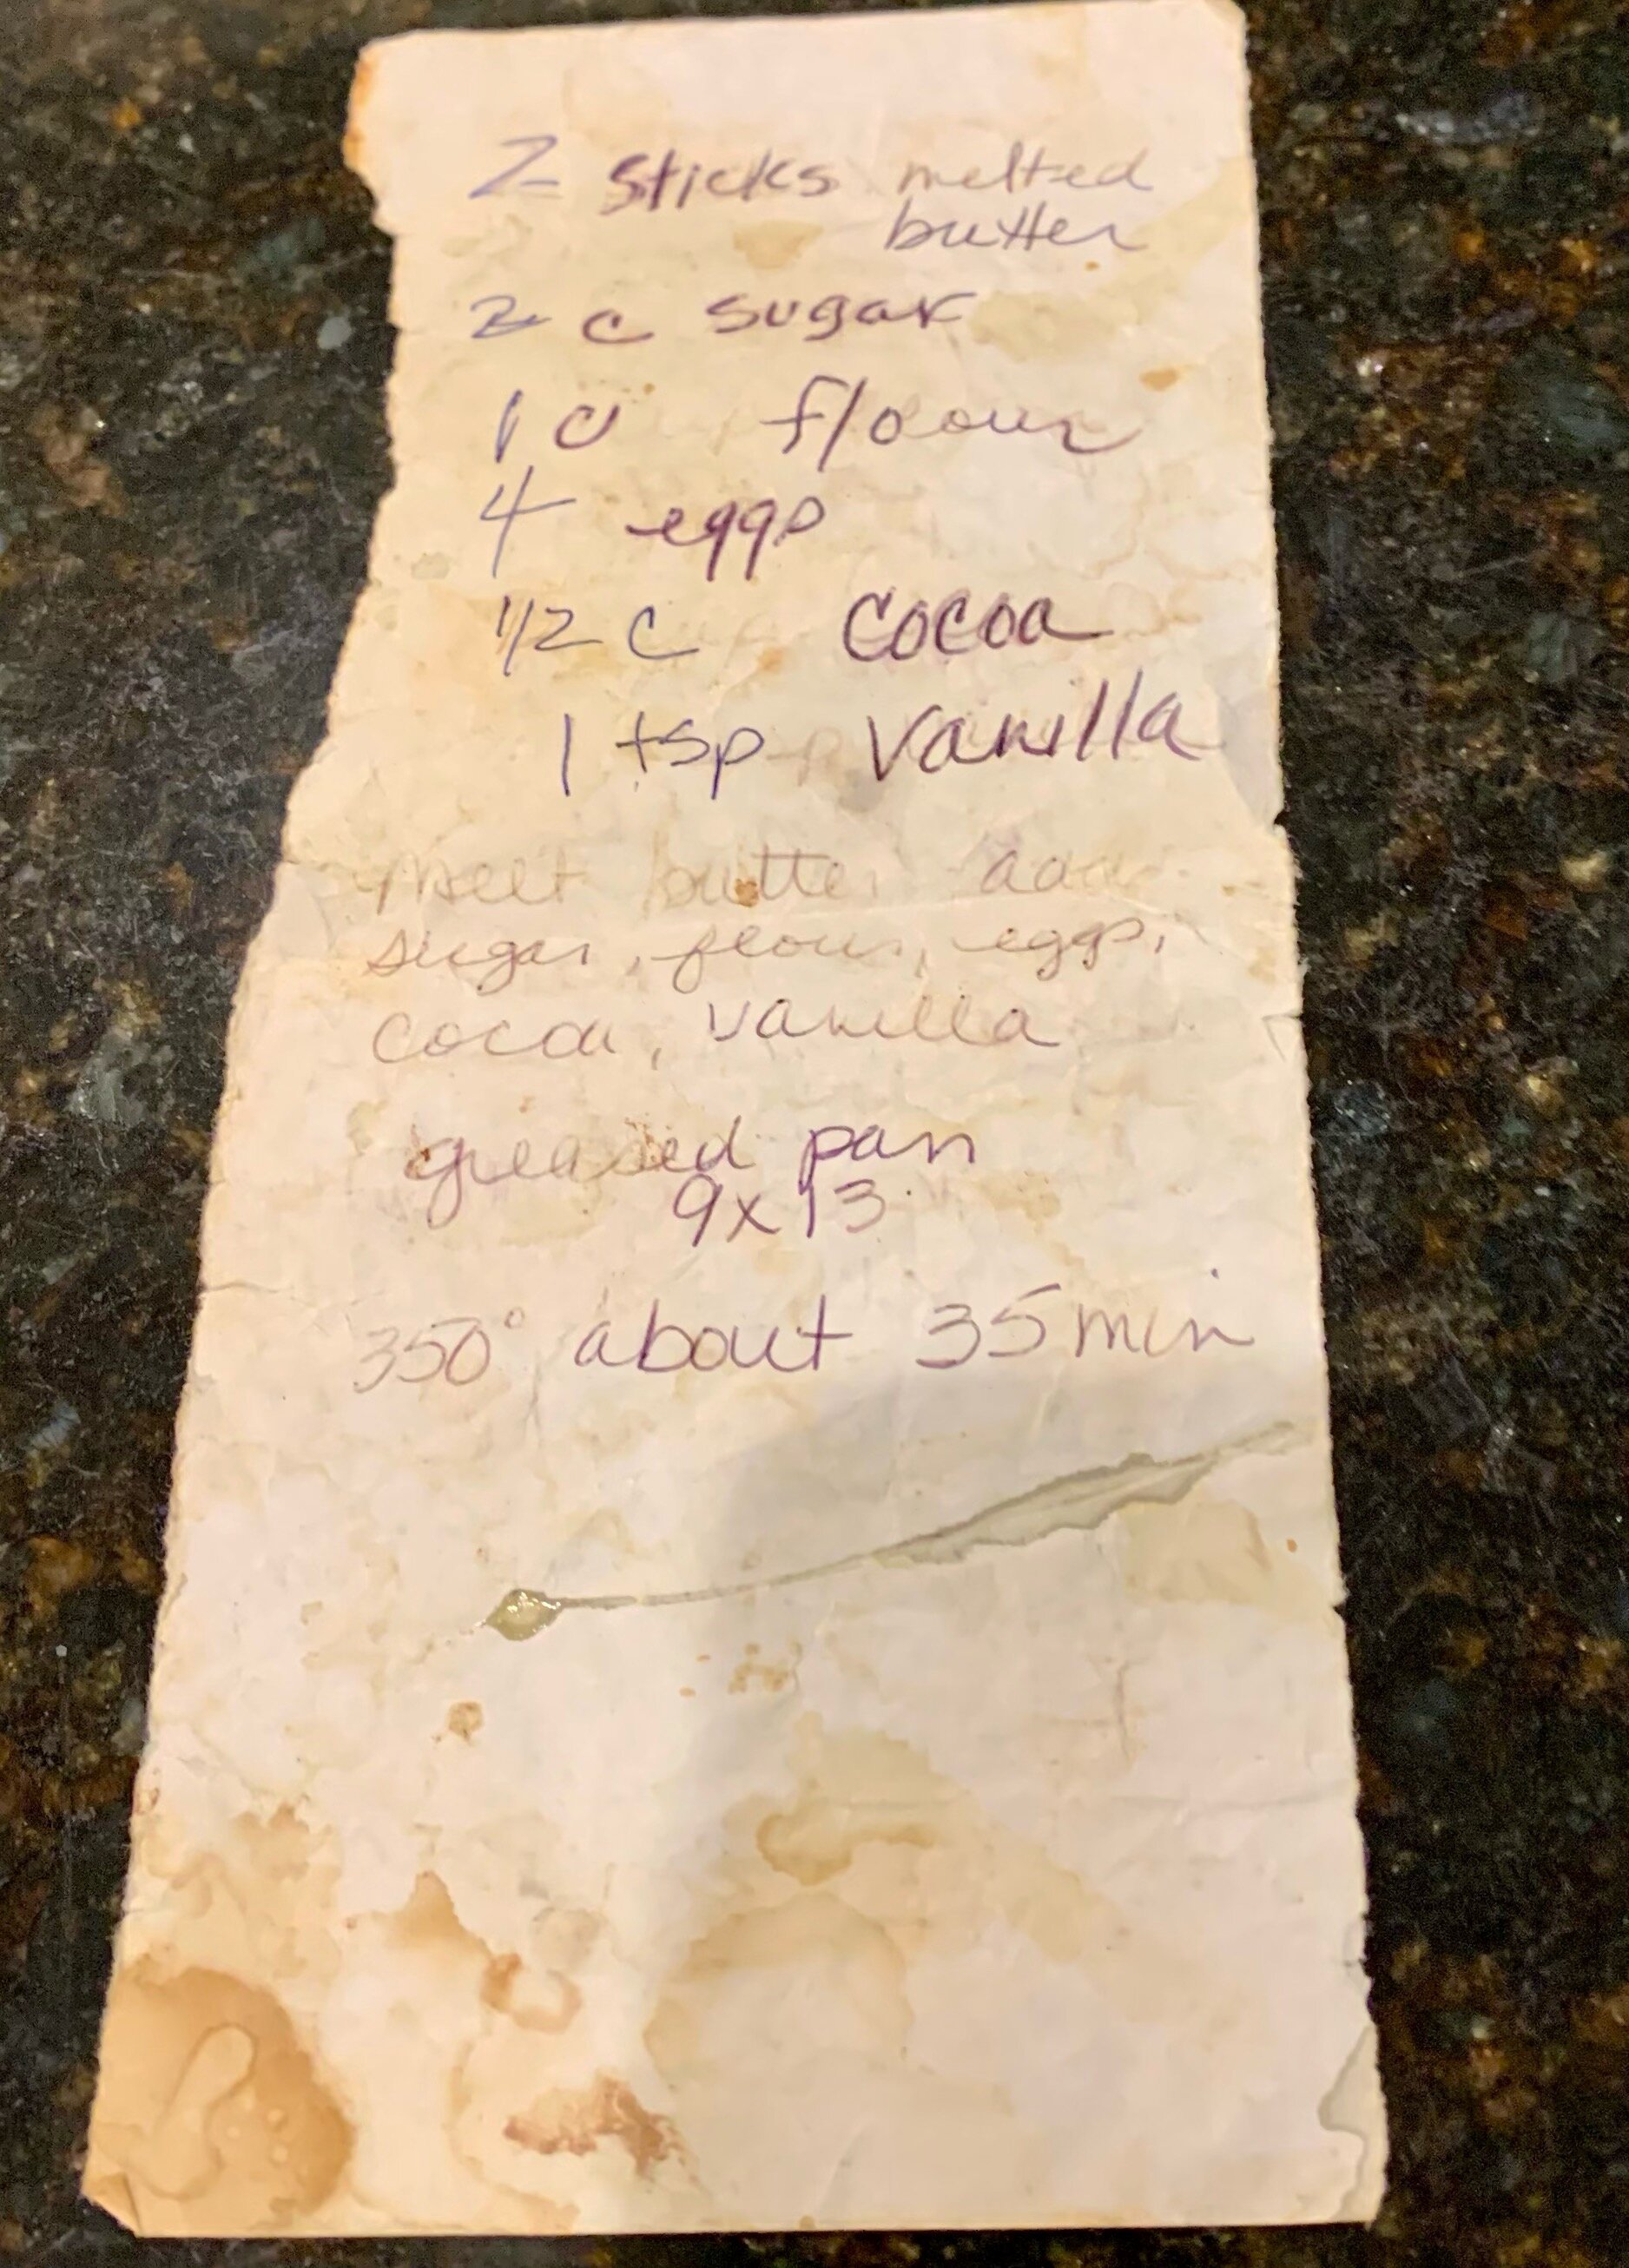 2 sticks melted
butter
2 c sugar
1 c flour
4 eggs
1/2 c cocoa
1 tsp vanilla
Melt butter add
sugar, flour, eggs,
cocoa, vanilla
greased pan
9x13
350° about 35 min